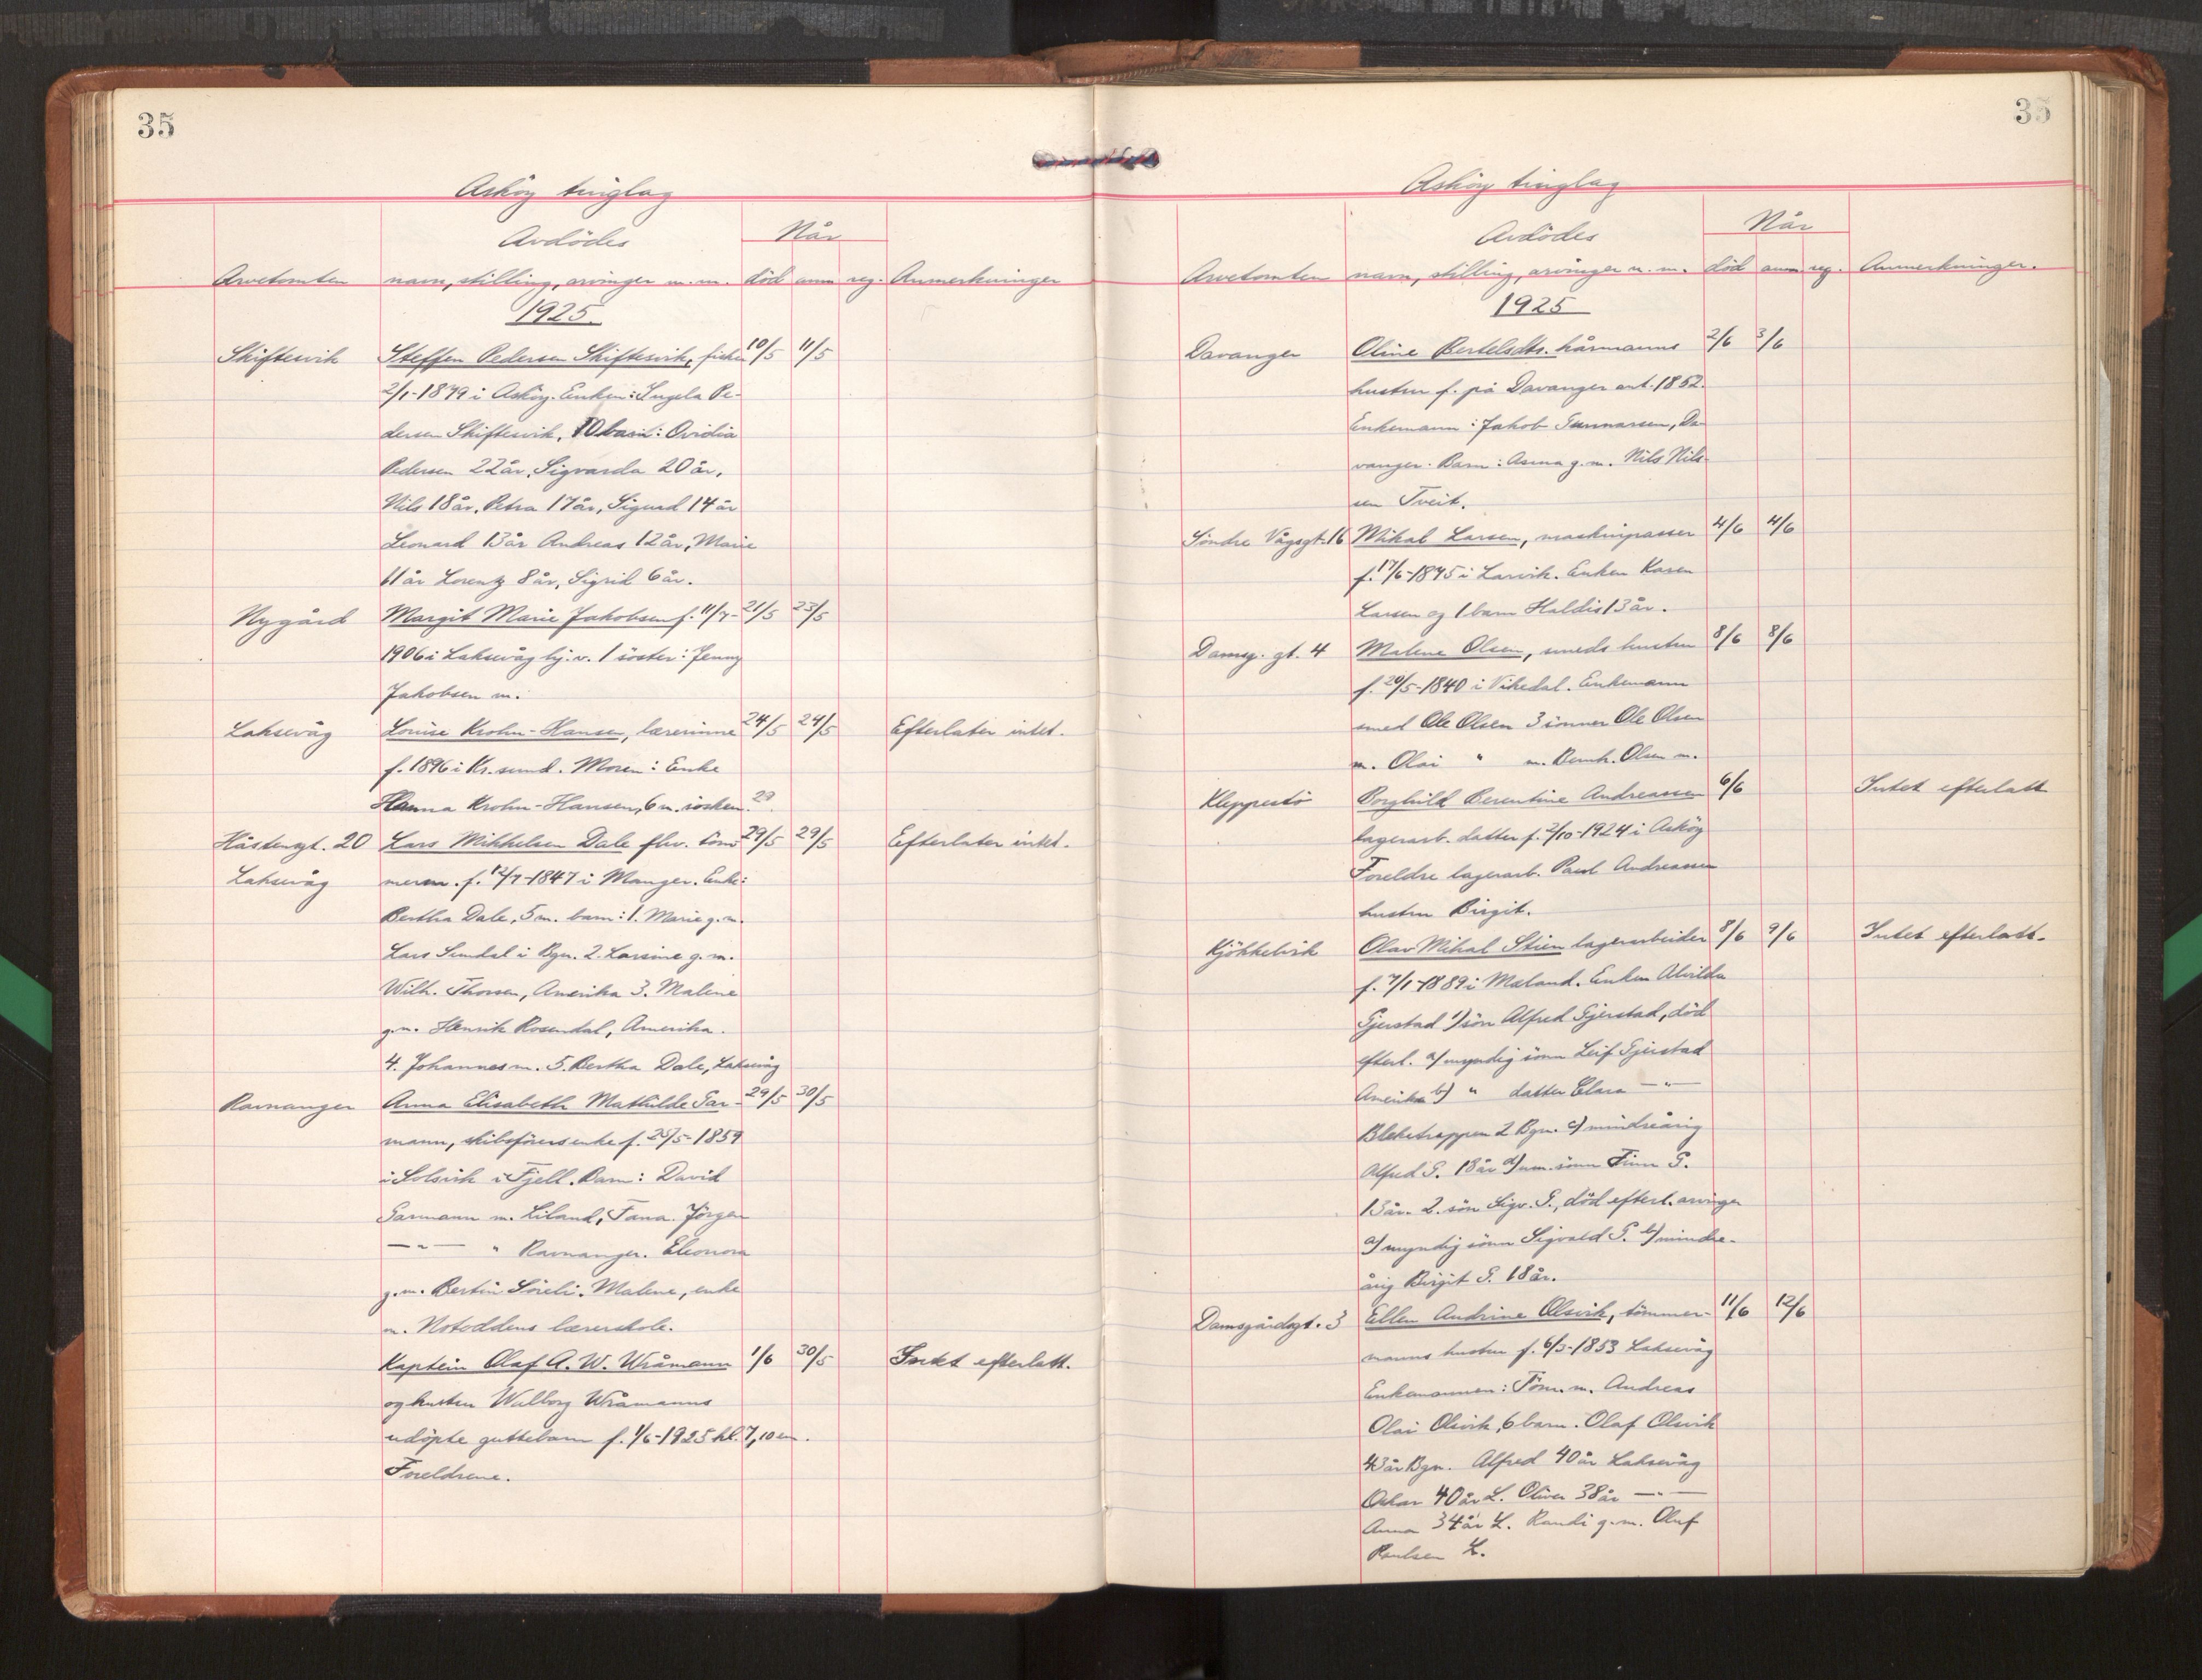 35
Askøy tinglag
Avdödes
Når
Arvetomten navn, stilling, arvinger m.m. död anm reg. Anmerkninger
1925.
Skiftesvik Steffen Pedersen Skiftesvik, fisker 10/5 11/5
2/1-1879 i Askøy. Enken: Ingela Pe-
dersen Skiftesvik, 10 barn: Ovidia
Pedersen 22 år, Sigvarda 20 år,
Nils 18 år, Petra 17 år, Sigurd 14 år
Leonard 13 år Andreas 12 år, Marie
11 år Lorentz 8 år, Sigrid 6 år.
Nygård Margit Marie Jakobsen f. 11/7- 21/5 23/5
1906 i Laksevåg hj. v. 1 söster: Jenny
Jakobsen m.
Laksevåg Louise Krohn-Hansen, lærerinne 24/5 24/5 Efterlater intet.
f. 1896 i Kr. sund. Moren: Enke
Hanna Krohn-Hansen, 6 m. sösken. 29.
Håstensgt. 20 Lars Mikkelsen Dale fhv. töm- 29/5 29/5 Efterlater intet.
Laksevåg merm. f. 12/7-1847 i Manger. Enke:
Bertha Dale, 5 m. barn: 1. Marie g.m.
Lars Sundal i Bgn. 2. Larsine g.m.
Wilh. Thorsen, Amerika 3. Malene
g.m. Henrik Rosendal, Amerika.
4. Johannes m. 5. Bertha Dale, Laksevåg
Ravnanger Anna Elisabeth Mathilde Gar- 29/5 30/5
mann, skibsförers enke f. 25/5-1859
i Solsvik i Fjell. Barn: David
Garmann m. Liland, Fana. Jörgen
—"— " Ravnanger. Eleonora
g.m. Bertin Söreli. Malene, enke
m. Notoddens lærerskole.
Kaptein Olaf A. W. Wråmann 1/6 30/5 Intet efterlatt.
og hustru Walborg Wråmanns
udöpte guttebarn f. 1/6-1925 kl. 7,10 em.
Foreldrene.
35
Askøy tinglag
Avdödes
Når
Arvetomten navn, stilling, arvinger m.m. död anm reg. Anmerkninger.
1925
Davanger Oline Bertelsdtr. hårmanns 2/6 3/6
hustru f. på Davanger ant. 1852.
Enkemann: Jakob Gunnarsen, Da-
vanger. Barn: Asina g.m. Nils Nils-
sen Tveit.
Söndre Vågsgt. 16 Mikal Larsen, maskinpasser 4/6 4/6
f. 17/6-1875 i Larvik. Enken Karen
Larsen og 1 barn Haldis 13 år.
Damsg. gt. 4 Malene Olsen, smeds hustru 8/6 8/6
f. 20/5-1840 i Vikedal. Enkemann
smed Ole Olsen 3 sönner Ole Olsen
m. Olai " m. Bernh. Olsen m.
Kleppestö Borghild Berentine Andreassen 6/6 Intet efterlatt
lagerarb. datter f. 2/10-1924 i Askøy
Foreldre lagerarb. Paul Andreassen
hustru Birgit.
Kjökkelvik Olav Mikal Stien lagerarbeider 8/6 9/6 Intet efterlatt.
f. 7/1-1889 i Måland. Enken Alvilda
Gjerstad 1) sön Alfred Gjerstad, död
efterl. a) myndig sönn Leif Gjerstad
Amerika b) " datter Clara —"—
Bleketrappen 2 Bgn. c) mindreårig
Alfred G. 18 år d) um. sönn Finn G.
13 år. 2. sön Sigv. G., död efterl. arvinger
a) myndig sönn Sigvald G. b) mindre-
årig Birgit G. 18 år.
Damsgårdsgt. 3 Ellen Andrine Olsvik, tömmer- 11/6 12/6
manns hustru f. 6/3-1853 Laksevåg
Enkemannen: Töm.m. Andreas
Olai Olsvik, 6 barn. Olaf Olsvik
43 år Bgn. Alfred 40 år Laksevåg
Oskar 40 år L. Oliver 38 år —"—
Anna 34 år L. Randi g.m. Oluf
Paulsen L.